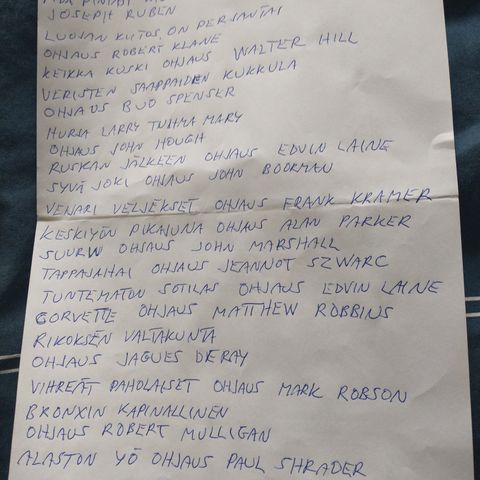 JOSEPH RUBEN
LUOJAN KIITOS, ON PERJANTAI
OHJAUS ROBERT KLANE
KEIKKA KUSKI OHJAUS WALTER HILL
VERISTEN SAAPPAIDEN KUKKULA
OHJAUS BUD SPENSER
HURJA LARRY TUHMA MARY
OHJAUS JOHN HOUGH
RUSKAN JÄLKEEN OHJAUS EDVIN LAINE
SYVÄ JOKI OHJAUS JOHN BOORMAN
VENARI VELJEKSET OHJAUS FRANK KRAMER
KESKIYÖN PIKAJUNA OHJAUS ALAN PARKER
OHJAUS JOHN MARSHALL
TAPPAJAHAI OHJAUS JEANNOT SZWARC
TUNTEMATON SOTILAS OHJAUS EDVIN LAINE
CORVETTE OHJAUS MATTHEW ROBBINS
RIKOKSEN VALTAKUNTA
OHJAUS JAGUES DERAY
VIHREÄT PAHOLAISET OHJAUS MARK ROBSON
BRONXIN KAPINALLINEN
OHJAUS ROBERT MULLIGAN
ALASTON YÖ OHJAUS PAUL SHRADER